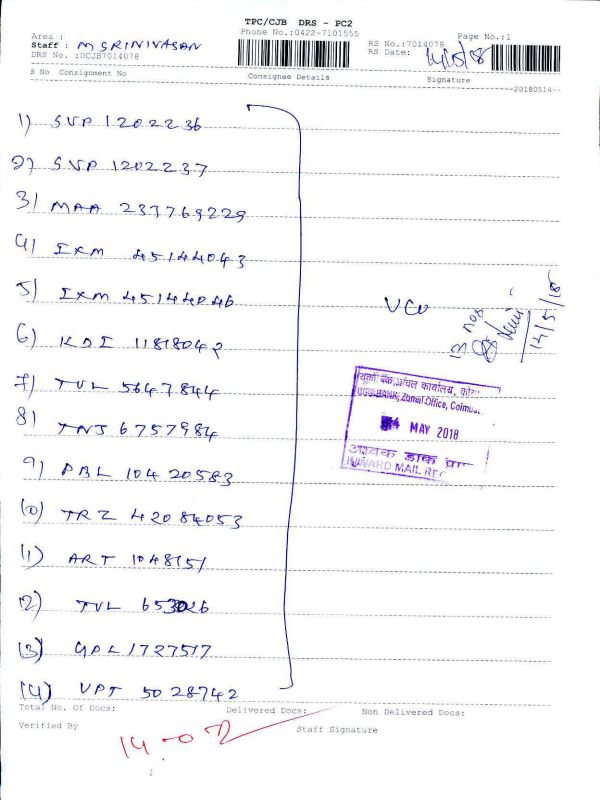 TPC/CJB DRS - PC2
Area :
Phone No.:0422-7101555
Page No.:1
Staff : M SRINIVASAN
RS No.:7014078
DRS No. :DCJB7014078
RS Date: 14/5/18
S No Consignment No
Consignee Details
Signature
--20180514--
1) SVP 1202236
2) SVP 1202237
3) MAA 237769229
4) IXM 45144043
5) IXM 45144046
6) KDI 11818042
7) TVL 5647844
8) TNJ 6757984
9) PBL 10420583
10) TRZ 42084053
11) ART 1048151
12) TVL 653026
13) GPL 1727517
14) VPT 5028742
UCO
13 nos
14/5/18
यूको बैंक, अंचल कार्यालय,
UCO BANK, Zonal Office, Coimb
MAY 2018
आवक डाक
INWARD MAIL REC
Total No. Of Docs:
Delivered Docs:
Non Delivered Docs:
Verified By
Staff Signature
14-02